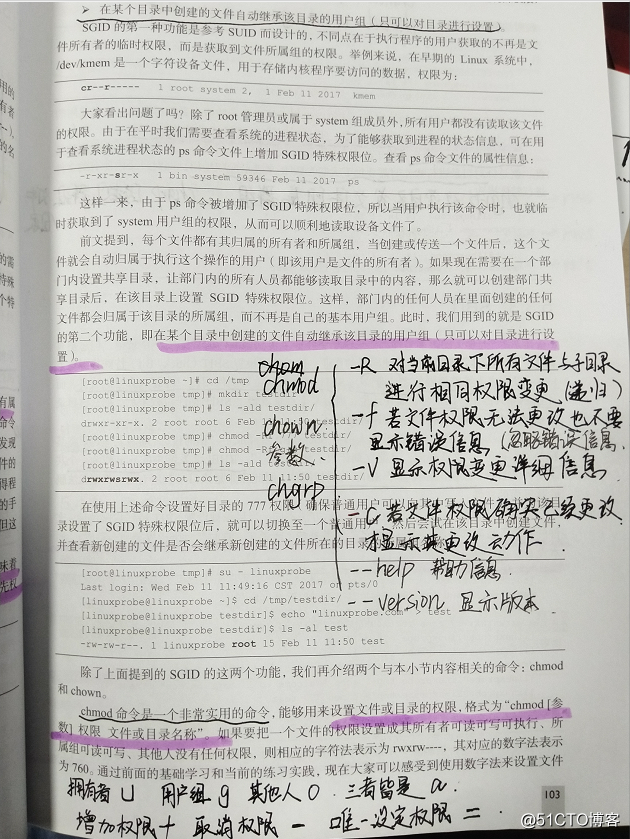 ➤ 在某个目录中创建的文件自动继承该目录的用户组（只可以对目录进行设置）。
SGID 的第一种功能是参考 SUID 而设计的，不同点在于执行程序的用户获取的不再是文
件所有者的临时权限，而是获取到文件所属组的权限。举例来说，在早期的 Linux 系统中，
/dev/kmem 是一个字符设备文件，用于存储内核程序要访问的数据，权限为：
cr--r----- 1 root system 2, 1 Feb 11 2017 kmem
大家看出问题了吗？除了 root 管理员或属于 system 组成员外，所有用户都没有读取该文件
的权限。由于在平时我们需要查看系统的进程状态，为了能够获取到进程的状态信息，可在用
于查看系统进程状态的 ps 命令文件上增加 SGID 特殊权限位。查看 ps 命令文件的属性信息：
-r-xr-sr-x 1 bin system 59346 Feb 11 2017 ps
这样一来，由于 ps 命令被增加了 SGID 特殊权限位，所以当用户执行该命令时，也就临
时获取到了 system 用户组的权限，从而可以顺利地读取设备文件了。
前文提到，每个文件都有其归属的所有者和所属组，当创建或传送一个文件后，这个文
件就会自动归属于执行这个操作的用户（即该用户是文件的所有者）。如果现在需要在一个部
门内设置共享目录，让部门内的所有人员都能够读取目录中的内容，那么就可以创建部门共
享目录后，在该目录上设置 SGID 特殊权限位。这样，部门内的任何人员在里面创建的任何
文件都会归属于该目录的所属组，而不再是自己的基本用户组。此时，我们用到的就是 SGID
的第二个功能，即在某个目录中创建的文件自动继承该目录的用户组（只可以对目录进行设
置）。
[root@linuxprobe ~]# cd /tmp
[root@linuxprobe tmp]# mkdir testdir
[root@linuxprobe tmp]# ls -ald testdir/
drwxr-xr-x. 2 root root 6 Feb 11
[root@linuxprobe tmp]# chmod
[root@linuxprobe tmp]# chmod
[root@linuxprobe tmp]# ls -ald
drwxrwsrwx. 2 root root 6 Feb
chmod
chown
参数：
chgrp
-R 对当前目录下所有文件与子目录
进行相同权限变更（递归）
-f 若文件权限无法更改也不要
显示错误信息（忽略错误信息
-V 显示权限变更详细信息
-C 若文件权限确实已经更改
才显示其更改动作.
--help 帮助信息.
--version 显示版本
在使用上述命令设置好目录的 777 权限
录设置了 SGID 特殊权限位后，就可以切换至一个普通用户，然后尝试在该目录中创建文件，
并查看新创建的文件是否会继承新创建的文件所在的目录
[root@linuxprobe tmp]# su - linuxprobe
Last login: Wed Feb 11 11:49:16 CST 2017 on pts/0
[linuxprobe@linuxprobe ~]$ cd /tmp/testdir/
[linuxprobe@linuxprobe testdir]$ echo "linuxprobe.com" > test
[linuxprobe@linuxprobe testdir]$ ls -al test
-rw-rw-r--. 1 linuxprobe root 15 Feb 11 11:50 test
除了上面提到的 SGID 的这两个功能，我们再介绍两个与本小节内容相关的命令：chmod
和 chown。
chmod 命令是一个非常实用的命令，能够用来设置文件或目录的权限，格式为“chmod [参
数] 权限 文件或目录名称”。如果要把一个文件的权限设置成其所有者可读可写可执行、所
属组可读可写、其他人没有任何权限，则相应的字符法表示为 rwxrw----，其对应的数字法表示
为 760。通过前面的基础学习和当前的练习实践，现在大家可以感受到使用数字法来设置文件
103
拥有者 U 用户组 g 其他人 O . 三者皆是 a.
增加权限 + 取消权限 - 唯一设定权限 = .
@51CTO博客